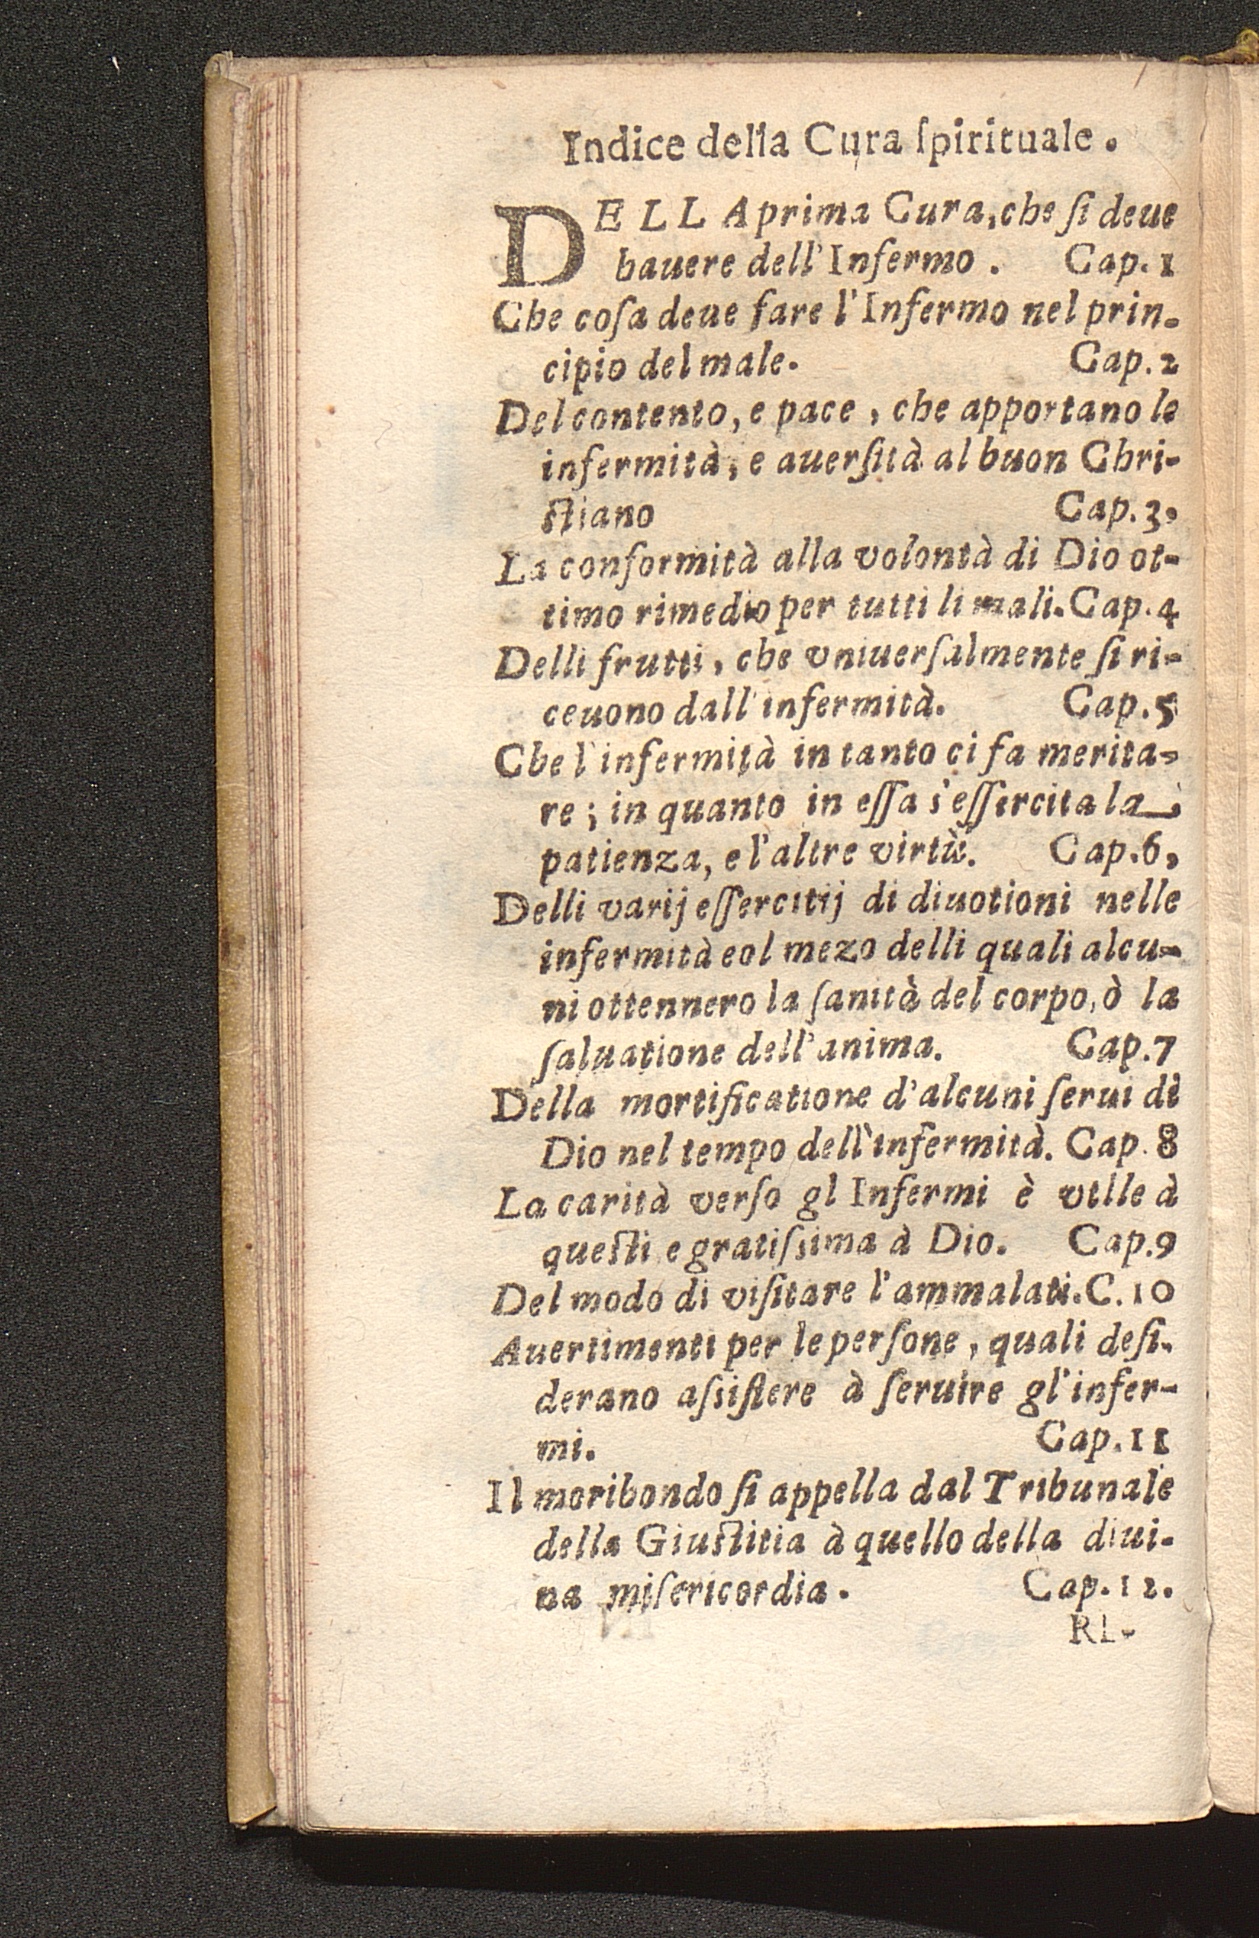 Indice della Cura ſpirituale.
DELLA prima Cura, che ſi deue
hauere dell'Infermo. Cap. 1
Che coſa deue fare l'Infermo nel prin-
cipio del male. Cap. 2
Del contento, e pace, che apportano le
infermità, e auerſità al buon Chri-
ſtiano Cap. 3.
La conformità alla volontà di Dio ot-
timo rimedio per tutti li mali. Cap. 4
Delli frutti, che vniuerſalmente ſi ri-
ceuono dall'infermità. Cap. 5
Che l'infermità in tanto ci fa merita-
re; in quanto in eſſa s'eſſercita la
patienza, e l'altre virtù. Cap. 6,
Delli varij eſſercitij di diuotioni nelle
infermità eol mezo delli quali alcu-
ni ottennero la ſanità del corpo, ò la
ſaluatione dell'anima. Cap. 7
Della mortificatione d'alcuni ſerui di
Dio nel tempo dell'infermità. Cap. 8
La carità verſo gl Infermi è vtile à
queſti e gratiſsima à Dio. Cap. 9
Del modo di viſitare l'ammalati. C. 10
Auertimenti per le perſone, quali deſi-
derano aſsiſtere à ſeruire gl'infer-
mi. Cap. 11
Il moribondo ſi appella dal Tribunale
della Giuſtitia à quello della diui-
na miſericordia. Cap. 12.
RI-